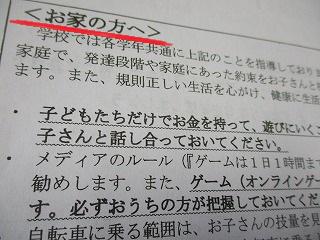 ＜お家の方へ＞
学校では各学年共通に上記のことを指導しており
家庭で、発達段階や家庭にあった約束をお子さんと
ます。また、規則正しい生活を心がけ、健康に生活
・ 子どもたちだけでお金を持って、遊びにいくこ
子さんと話し合っておいてください。
・ メディアのルール（『ゲームは１日１時間まで
勧めします。また、ゲーム（オンラインゲー
す。必ずおうちの方が把握しておいてくだ
自転車に乗る範囲は、お子さんの技量を見